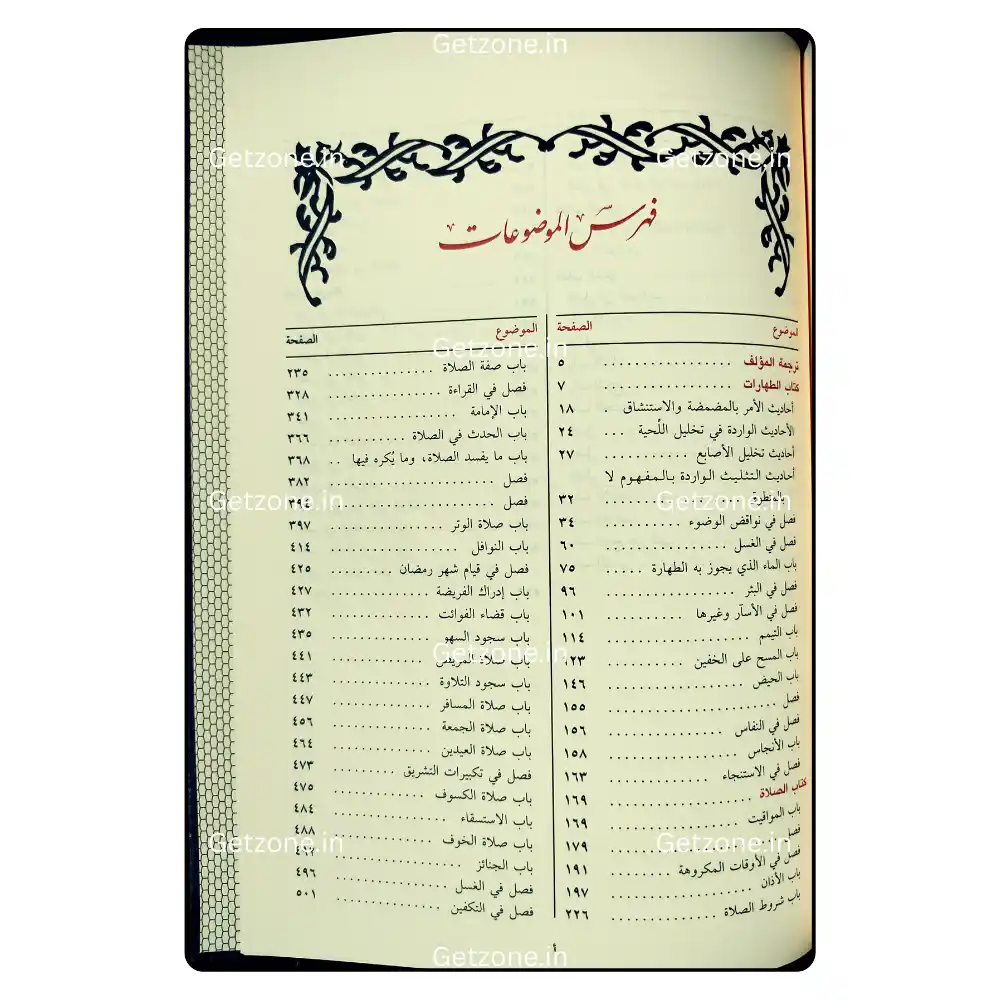 Getzone.in
Getzone.in
Getzone.in
فهرس الموضوعات
الموضوع الصفحة
ترجمة المؤلف ................. ٥
كتاب الطهارات ................. ٧
أحاديث الأمر بالمضمضة والاستنشاق . ١٨
الأحاديث الواردة في تخليل اللّحية ... ٢٤
أحاديث تخليل الأصابع ........... ٢٧
أحاديث التثليث الواردة بالمفهوم لا
بالمنطوق ................. ٣٢
فصل في نواقض الوضوء ........... ٣٤
فصل في الغسل ................. ٦٠
باب الماء الذي يجوز به الطهارة ..... ٧٥
فصل في البئر ................. ٩٦
فصل في الأسآر وغيرها ........... ١٠١
باب التيمم ................. ١١٤
باب المسح على الخفين ........... ١٢٣
باب الحيض ................. ١٤٦
فصل ................. ١٥٥
فصل في النفاس ................. ١٥٦
باب الأنجاس ................. ١٥٨
فصل في الاستنجاء ............. ١٦٣
كتاب الصلاة ................. ١٦٩
باب المواقيت ................. ١٦٩
فصل ................. ١٧٩
فصل في الأوقات المكروهة ......... ١٩١
باب الأذان ................. ١٩٧
باب شروط الصلاة ............. ٢٢٦
الموضوع الصفحة
باب صفة الصلاة ............... ٢٣٥
فصل في القراءة ............... ٣٢٨
باب الإمامة ................. ٣٤١
باب الحدث في الصلاة ........... ٣٦٦
باب ما يفسد الصلاة، وما يُكره فيها .. ٣٦٨
فصل ................. ٣٨٢
فصل ................. ٣٩٤
باب صلاة الوتر ............... ٣٩٧
باب النوافل ................. ٤١٤
فصل في قيام شهر رمضان ......... ٤٢٥
باب إدراك الفريضة ............. ٤٢٧
باب قضاء الفوائت ............. ٤٣٢
باب سجود السهو ............. ٤٣٥
باب صلاة المريض ............. ٤٤١
باب سجود التلاوة ............. ٤٤٣
باب صلاة المسافر ............. ٤٤٧
باب صلاة الجمعة ............. ٤٥٦
باب صلاة العيدين ............. ٤٦٤
فصل في تكبيرات التشريق ......... ٤٧٣
باب صلاة الكسوف ............. ٤٧٥
باب الاستسقاء ............... ٤٨٤
باب صلاة الخوف ............. ٤٨٨
باب الجنائز .................
فصل في الغسل ............... ٤٩٦
فصل في التكفين ............... ٥٠١
أ
Getzone.in
Getzone.in
Getzone.in
Getzone.in
Getzone.in
Getzone.in
Getzone.in